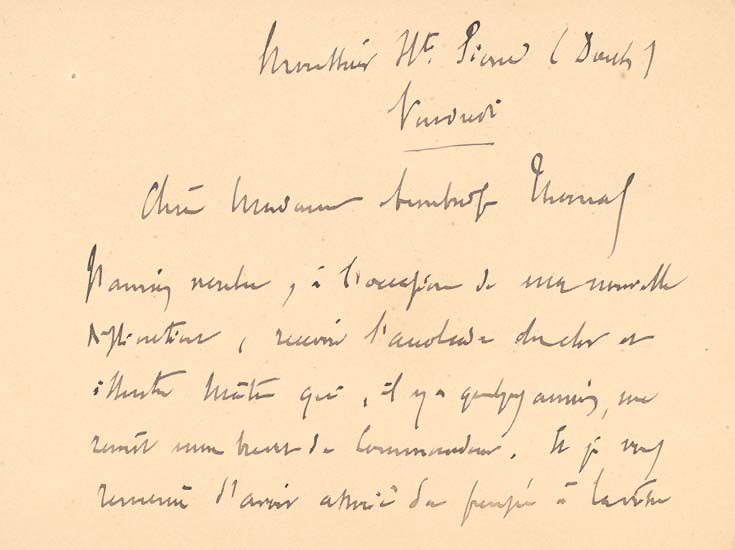 Mouthier Hte Pierre (Doubs)
Vendredi
Chère Madame Ambroise Thomas
J'aurais voulu, à l'occasion de ma nouvelle
distinction, recevoir l'accolade du cher et
illustre Maître qui, il y a quelques années, me
remit mon brevet de Commandeur. Et je vous
remercie d'avoir associé sa pensée à la vôtre